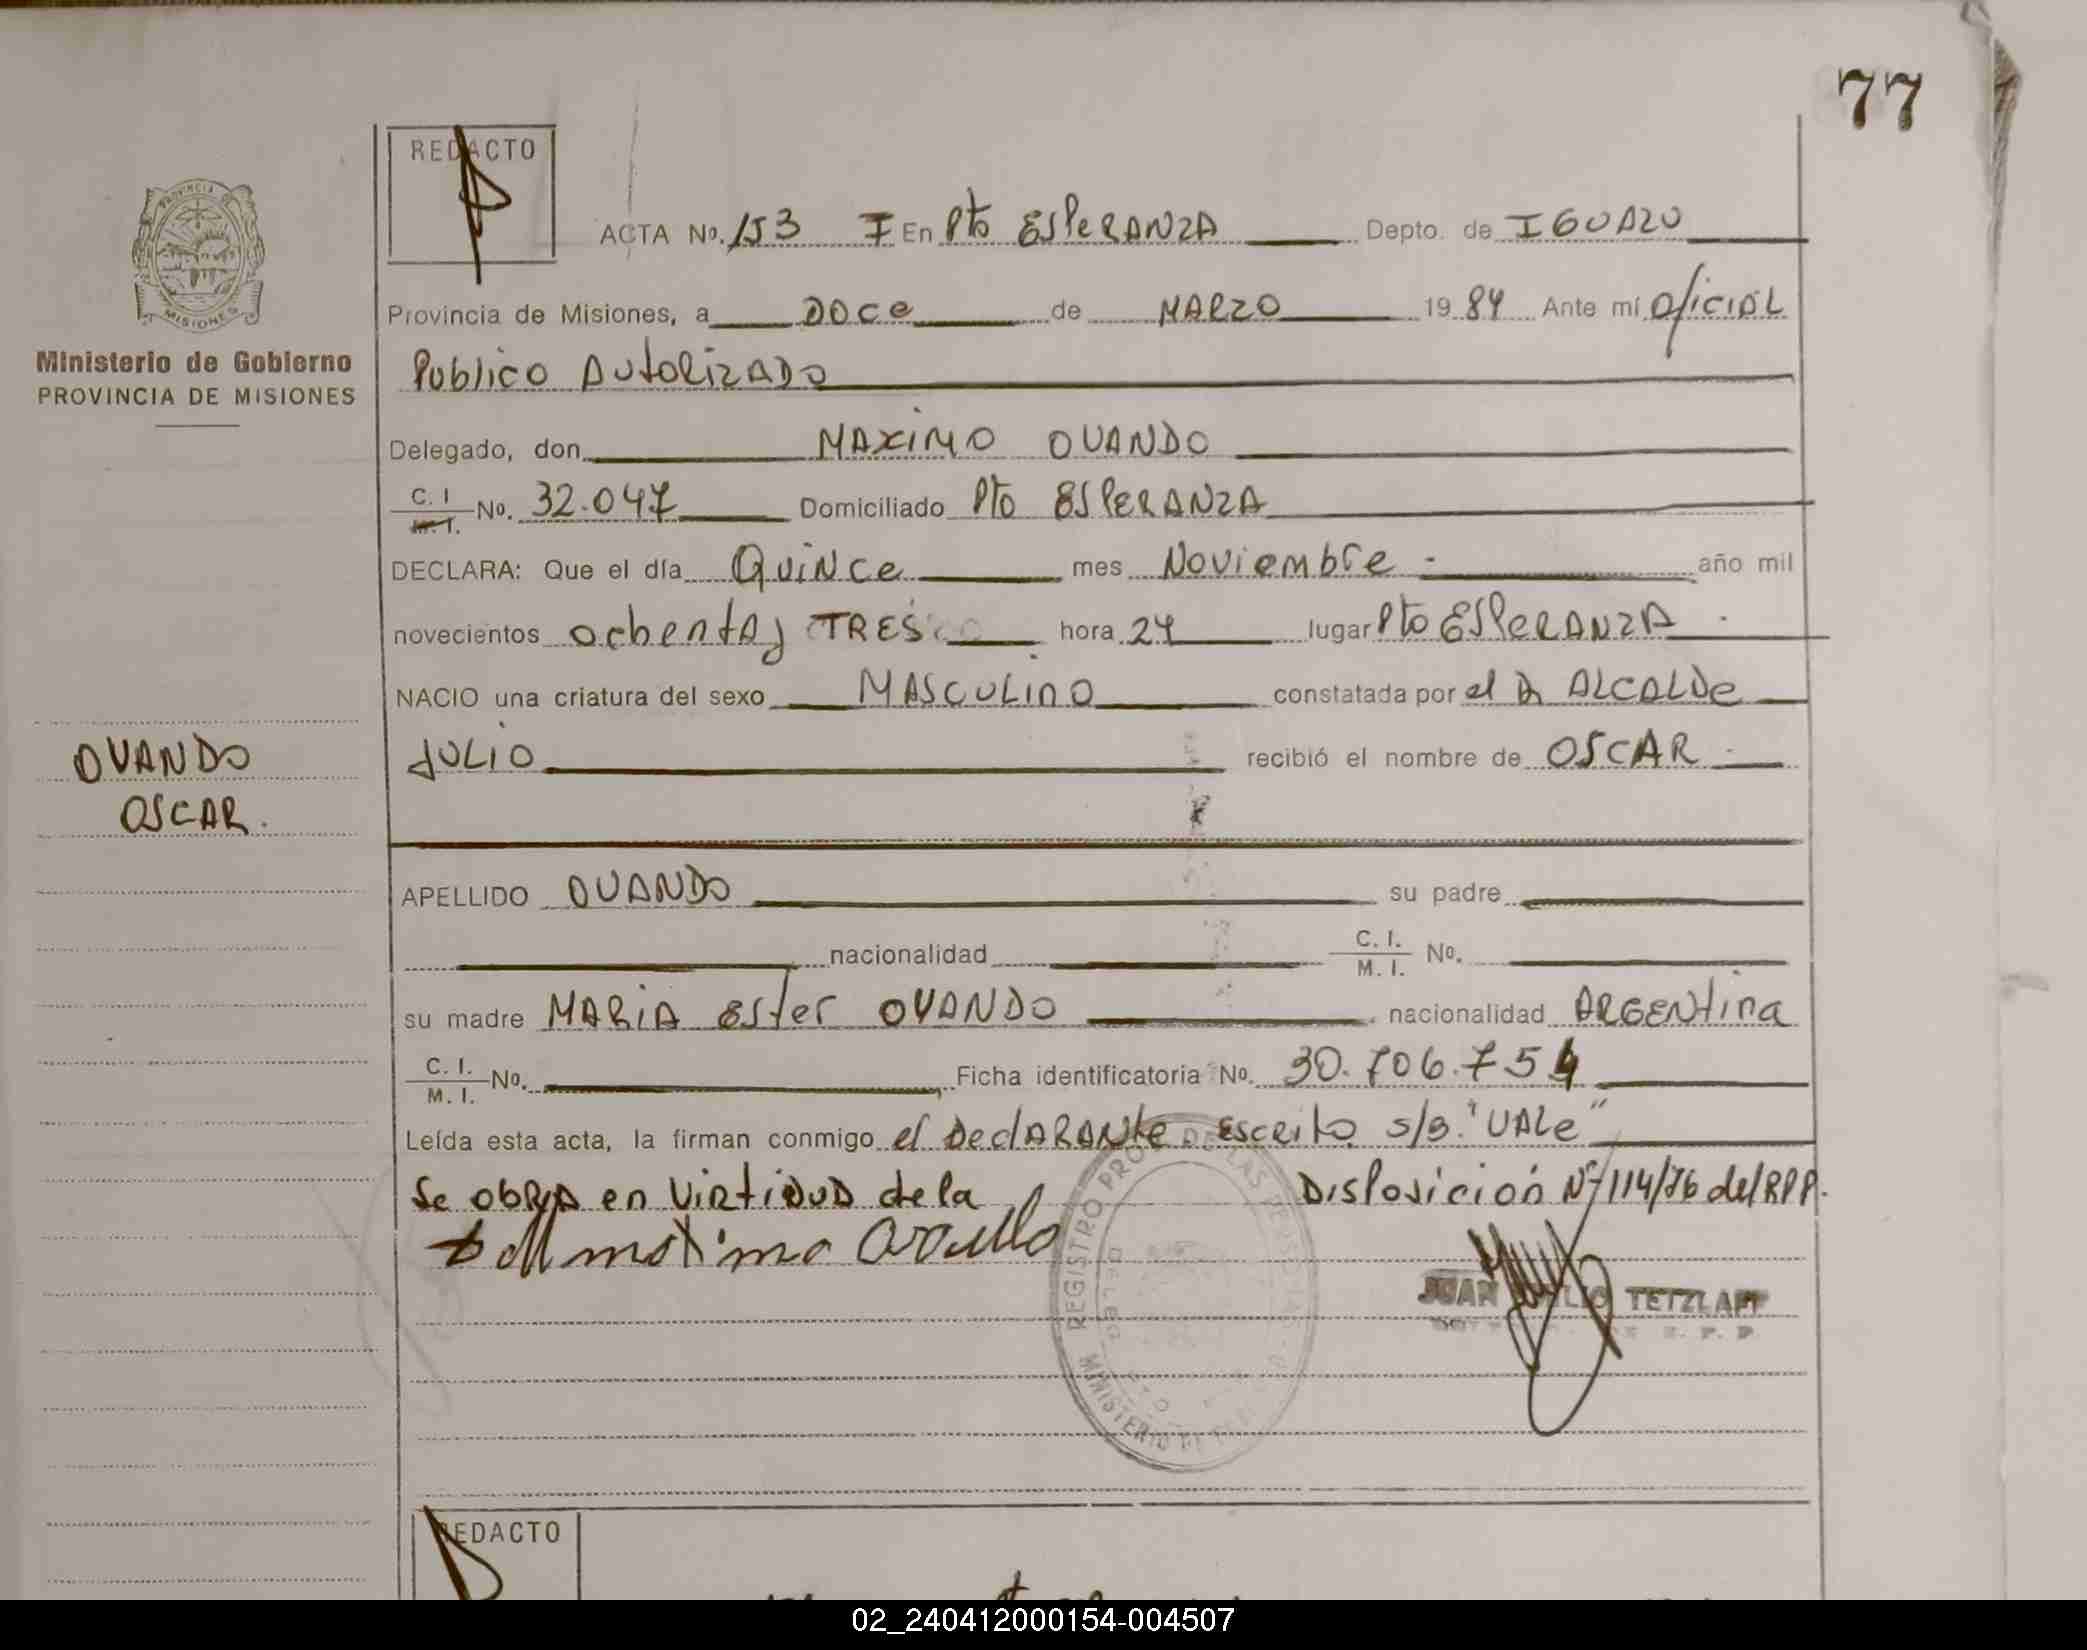 77
REDACTO
ACTA No. 153 I En Pto ESPERANZA Depto. de IGUAZU
PROVINCIA
MISIONES
Ministerio de Gobierno
PROVINCIA DE MISIONES
Provincia de Misiones, a DOCE de MARZO 1984 Ante mí Oficial
Publico Autorizado
Delegado, don MAXIMO OVANDO
C. I. M. I. No. 32.047 Domiciliado Pto ESPERANZA
DECLARA: Que el día Quince mes Noviembre año mil
novecientos ochenta y TRES hora 24 lugar Pto ESPERANZA
NACIO una criatura del sexo MASCULINO constatada por el Dr ALCALDE
JULIO recibió el nombre de OSCAR
OVANDO
OSCAR.
APELLIDO OVANDO su padre
nacionalidad C. I. M. I. No.
su madre MARIA Ester OVANDO nacionalidad ARGENtina
C. I. M. I. No. Ficha identificatoria No. 30.706.754
Leída esta acta, la firman conmigo el DeclARANte Escrito s/b. "VALe"
Se obra en Virtidud de la Disposición Nº 114/76 del RPP.
REGISTRO PROV. DE LAS PERSONAS
MINISTERIO DE
JUAN TETZLAFF
REDACTO
02_240412000154-004507